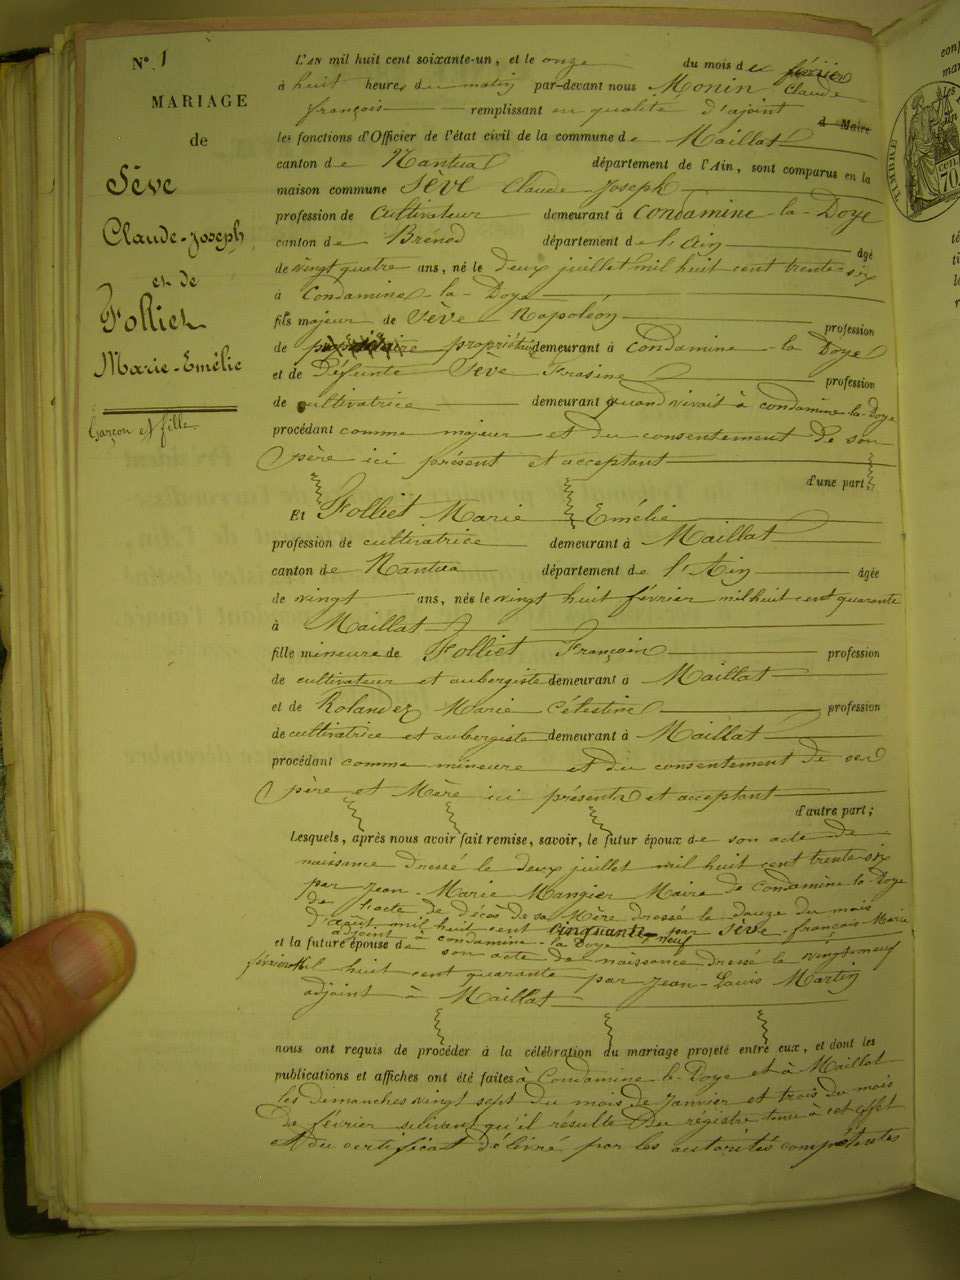 N°. 1
MARIAGE
de
Sève
Claude-Joseph
et de
Folliet
Marie-Emélie
Garçon et fille
L'AN mil huit cent soixante-un, et le onze du mois de février
à huit heures du matin par-devant nous Monin Claude
françois remplissant en qualité d'ajoint
d Maire
les fonctions d'Officier de l'état civil de la commune de Maillat
canton de Nantua département de l'Ain, sont comparus en la
maison commune Sève Claude Joseph
profession de Cultivateur demeurant à Condamine-la-Doye
canton de Brénod département de l'Ain âgé
de vingt quatre ans, né le Deux juillet mil huit cent trente-six
à Condamine-la-Doye
fils majeur de Sève Napoléon profession
de propriétaire propriétaire demeurant à Condamine-la Doye
et de Défunte Sève profession
de cultivatrice demeurant quand vivait à condamine-la-Doye
procédant comme majeur et du consentement de son
père ici présent et acceptant
d'une part;
Et Folliet Marie Emélie
profession de cultivatrice demeurant à Maillat
canton de Nantua département de l'Ain âgée
de vingt ans, née le vingt huit février mil huit cent quarante
à Maillat
fille mineure de Folliet François profession
de cultivateur et aubergiste demeurant à Maillat
et de Rolandez Marie Célestine profession
de cultivatrice et aubergiste demeurant à Maillat
procédant comme mineure et du consentement de ses
père et Mère ici présents et acceptant
d'autre part;
Lesquels, après nous avoir fait remise, savoir, le futur époux de son acte de
naissance dressé le deux juillet mil huit cent trente-six
par Jean-Marie Mangier Maire de Condamine-la-Doye
de l'acte de décès de sa Mère dressé le douze du mois
d'août mil huit cent cinquante neuf par Sève françois Marie
adjoint à condamine-la Doye
et la future épouse de son acte de naissance dressé le vingt neuf
février mil huit cent quarante par Jean-Louis Martin
adjoint à Maillat
nous ont requis de procéder à la célébration du mariage projeté entre eux, et dont les
publications et affiches ont été faites à Condamine-la-Doye et à Maillat
les dimanches vingt sept du mois de Janvier et trois du mois
de février suivant qu'il résulte du régistre tenu à cet effet
et du certificat délivré par les autorités compétentes
TIMBRE
70